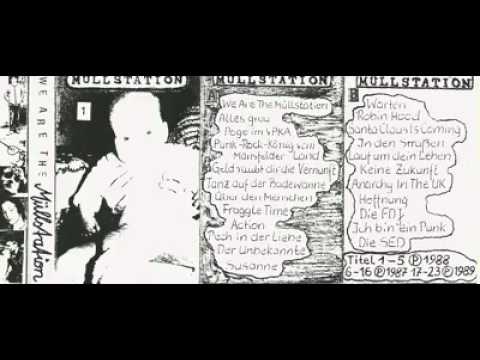 WE ARE THE Müllstation
MÜLLSTATION
1
MÜLLSTATION
A
We Are The Müllstation
Alles grau
Pogo im VPKA
Punk-Rock-König vom
Mansfelder Land
Geld raubt dir die Vernunft
Tanz auf der Badewanne
Über den Menschen
Fraggle Time
Action
Pech in der Liebe
Der Unbekannte
Susanne
MÜLLSTATION
B
Warten
Robin Hood
Santa Claus Is Coming
In den Straßen
Lauf um dein Leben
Keine Zukunft
Anarchy In The UK
Hoffnung
Die FDJ
Ich bin ein Punk
Die SED
Titel 1-5 Ⓟ 1988
6-16 Ⓟ 1987 17-23 Ⓟ 1989